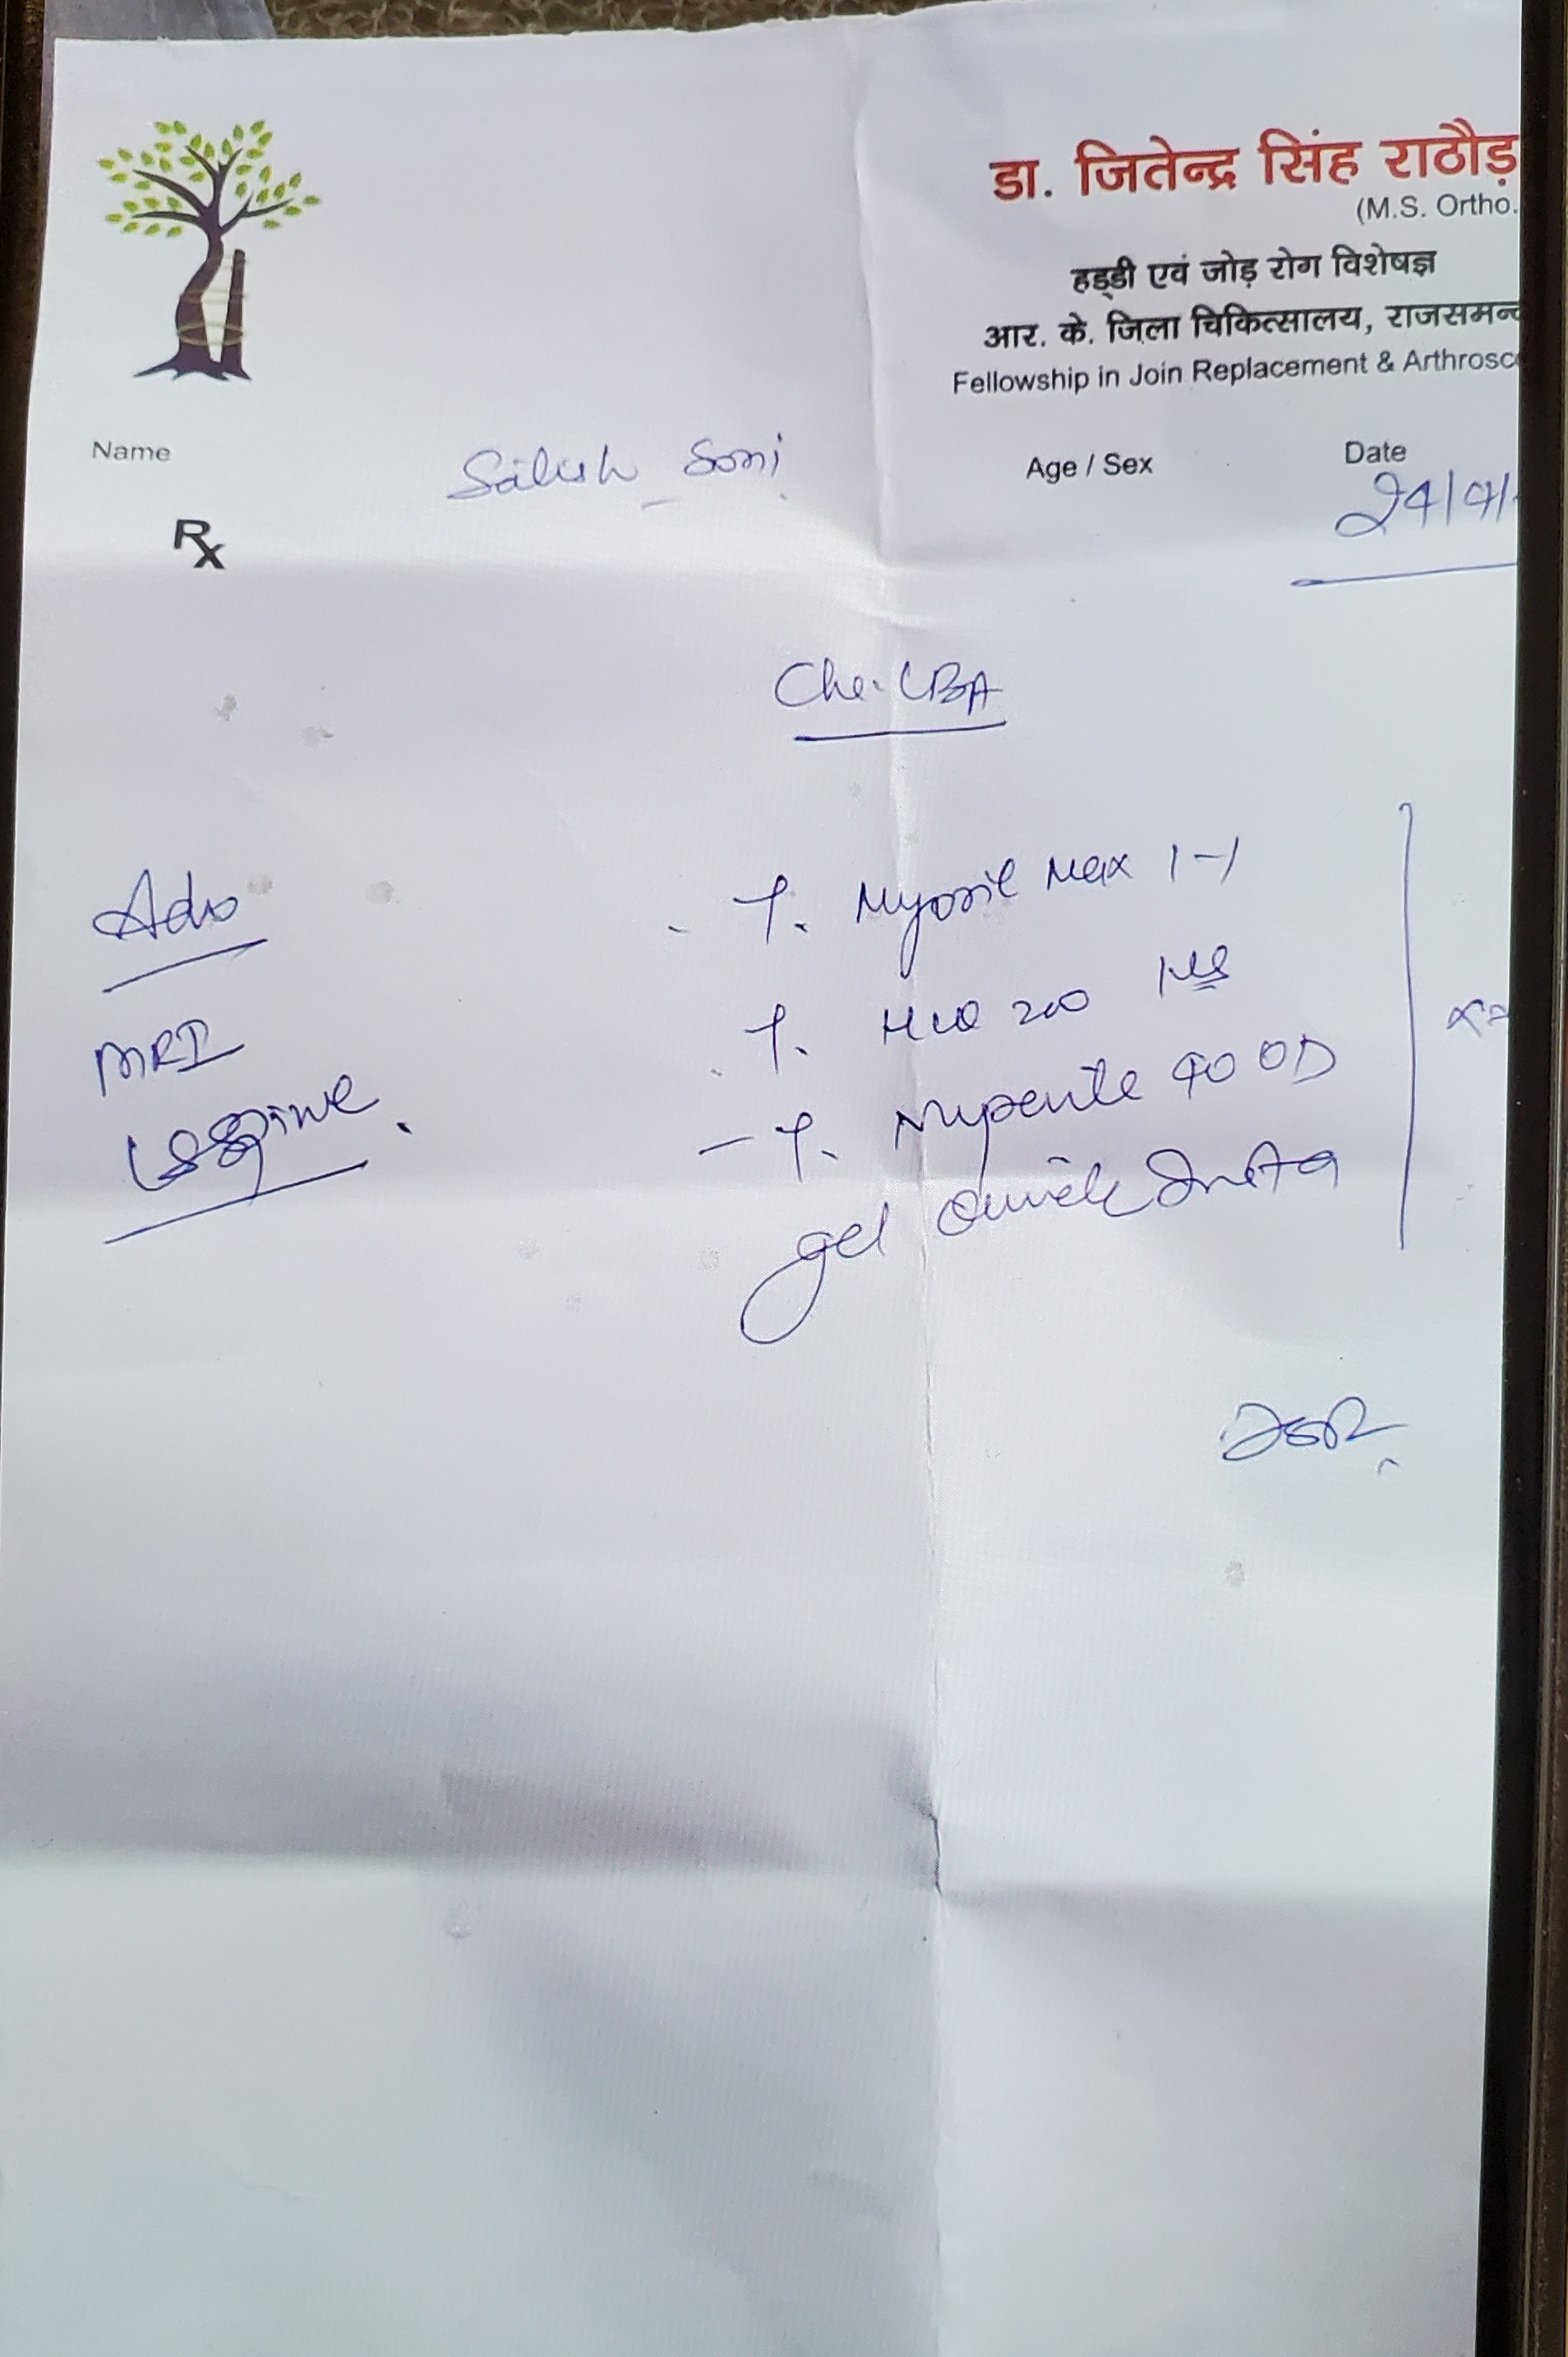 डा. जितेन्द्र सिंह राठौड़
(M.S. Ortho.
हड्डी एवं जोड़ रोग विशेषज्ञ
आर. के. जिला चिकित्सालय, राजसमन्द
Fellowship in Join Replacement & Arthrosc
Name Satish Soni Age / Sex Date 24/9/
Rx
Che. LBA
Adv
MRI
LSSpine
- T. Myoril Max 1-1
T. HCQ 200 HS
- T. 90 OD
gel Quick
JSR